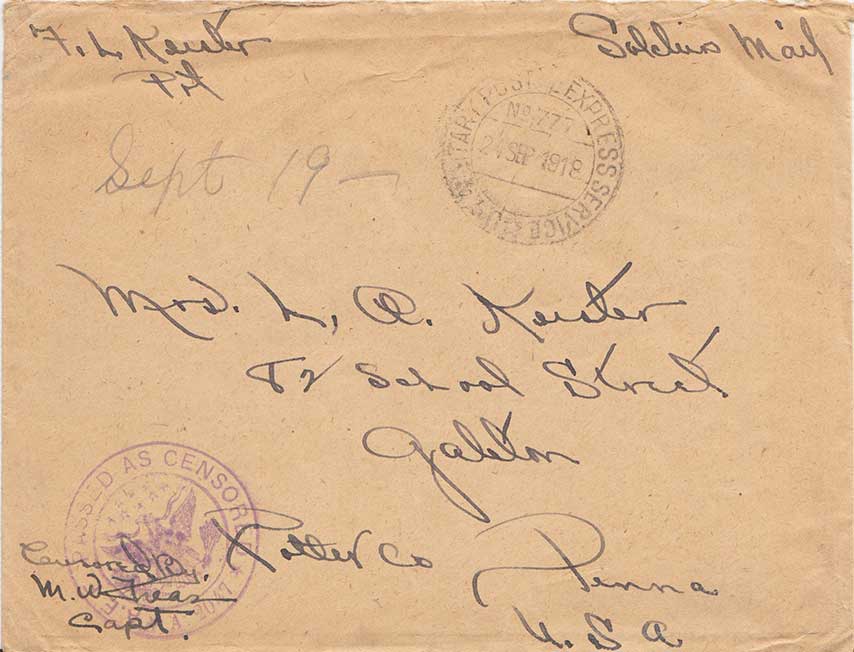 F. L Keister
Pvt
Soldiers Mail
MILITARY POSTAL EXPRESS SERVICE
No 777
24 SEP 1918
Sept 19 —
Mrs. L, A. Keister
82 School Street
Galeton
Potter Co Penna
U. S A
PASSED AS CENSORED
A.E.F.
Censored By.
M. W.
Capt.